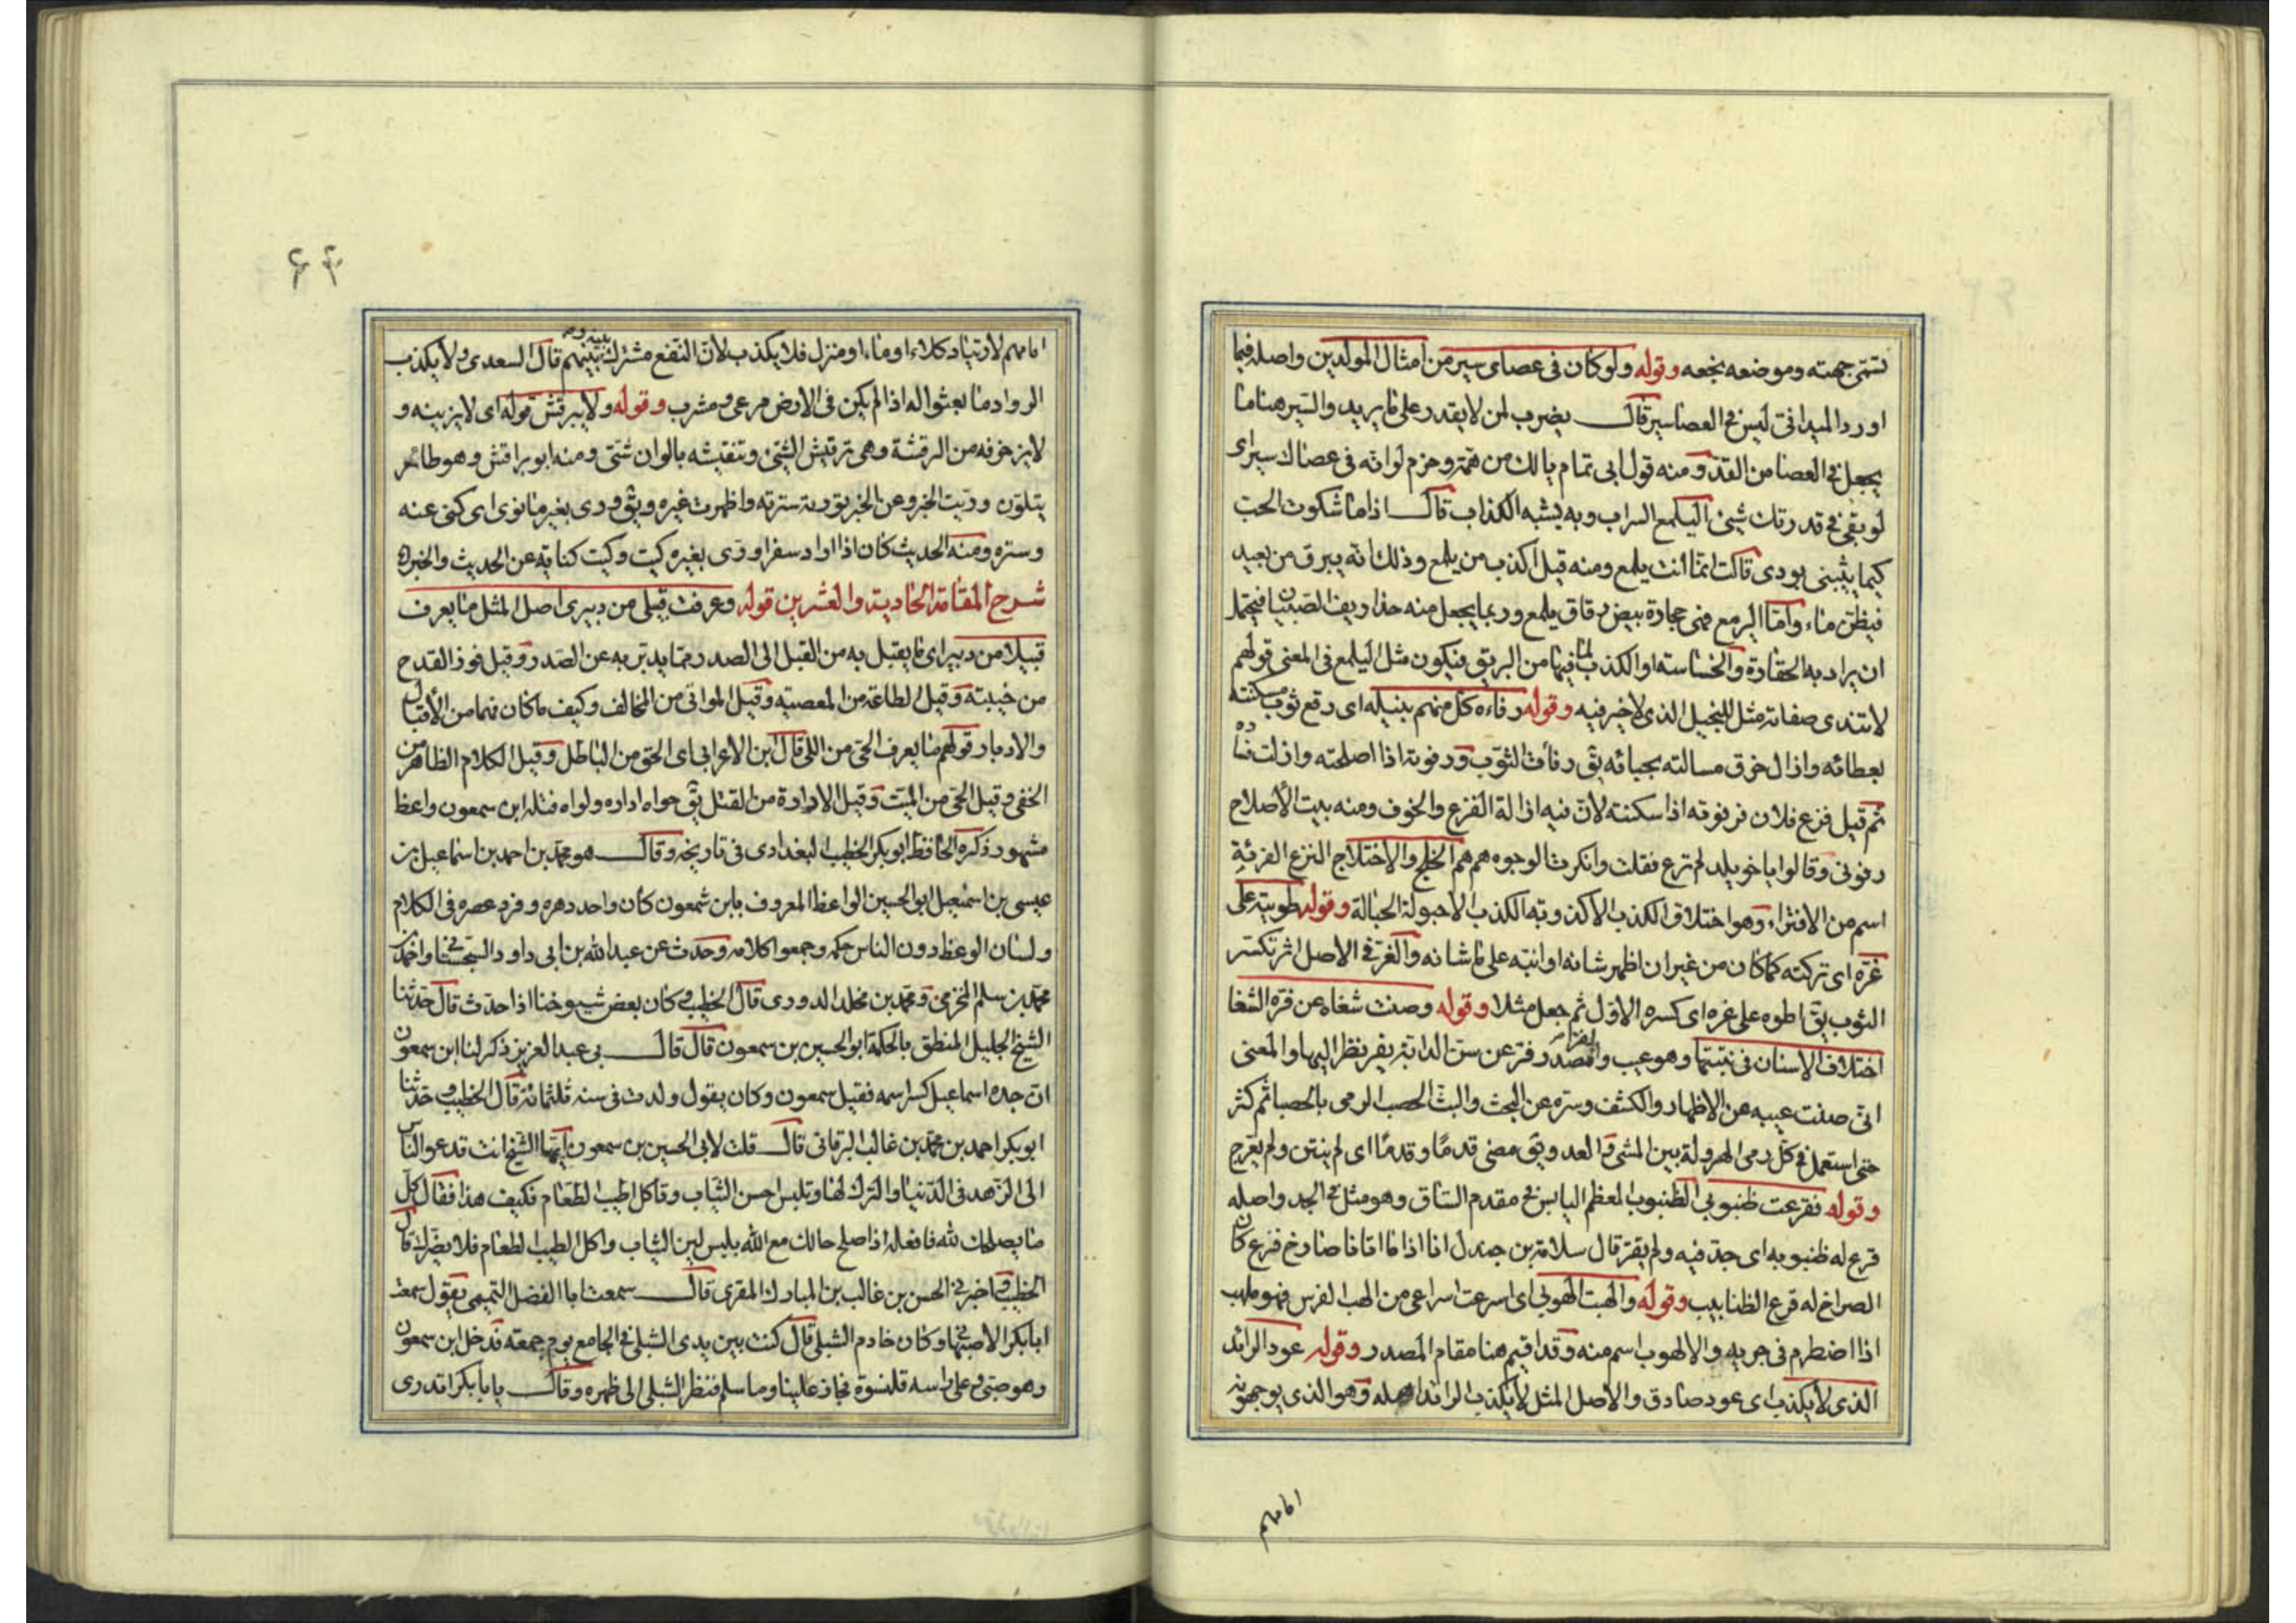 تسمى جهته وموضعه نجعه وقوله ولو كان فى عصاى سير من امثال المولدين واصله فيما
اورد الميدانى ليس فى العصا سير قال يضرب لمن لا يقدر على ما يريد والسير هنا ما
يجعل فى العصا من القد ومنه قول ابى تمام يا لك من همة وحزم لو انه فى عصاك سير اى
لو بقى فى قدرتك شيئ اليلمع السراب وبه يشبه الكذاب قال اذا ما شكوت الحب
كيما يثيبنى بودى قالت انما انت يلمع ومنه قيل اكذب من يلمع وذلك انه يبرق من بعيد
فيظن ماء واما اليرمع فهى حجارة بيض رقاق يلمع وربما يجعل منه حذاريف الصبيان فيحتمل
ان يراد به الحقارة والخساسة او الكذب لما فيها من البريق فيكون مثل اليلمع فى المعنى قولهم
لا تندى صفاته مثل للبخيل الذى لا خير فيه وقوله رفاءه كل منهم بنيله اى رقع ثوب مسكنته
بعطائه وازال خرق مسالته بحبائه يق رفات الثوب ورفوته اذا اصلحته وازلت فساده
ثم قيل فزع فلان فرفوته اذا سكنته لان فيه ازالة الفزع والخوف ومنه بيت الأصلاح
رفونى وقالوا يا خويلد لم ترع فقلت وانكرت الوجوه هم هم الخلج والاختلاج النزع الفرئة
اسم من الافتراء وهو اختلاق الكذب الاكذوبة الكذب الاحبولة الحبالة وقوله طويته على
غره اى تركته كما كان من غير ان اظهر شانه او انبه على ما شانه والغر فى الاصل اثر تكسر
الثوب يق اطوه على غره اى كسره الاول ثم جعل مثلا وقوله وصنت شغاه عن فره الشغا
اختلاف الاسنان فى نبتتها وهو عيب والفر مصدر فر عن سن الدابة يفر نظر اليها والمعنى
انى صنت عيبه عن الاظهار والكشف وستره عن البحث والبث الحصب الرمى بالحصبا ثم كثر
حتى استعمل فى كل رمى الهرولة بين المشى والعدو يق مضى قدمًا وقدمًا اى لم ينثن ولم يعرج
وقوله فقرعت ظنبوبى الظنبوب العظم اليابس فى مقدم الساق وهو مثل فى الجد واصله
قرع له ظنبوبه اى جد فيه ولم يقر قال سلامة بن جندل انا اذا ما اتانا صارخ فزع كان
الصراخ له قرع الظنابيب وقوله والهبت الهوبى اى اسرعت اسراعى من الهب الفرس فهو ملهب
اذا اضطرم فى جريه والالهوب اسم منه وقد اقيم هنا مقام المصدر وقوله عود الرائد
الذى لا يكذب اى عود صادق والاصل المثل لا يكذب الرائد اهله وهو الذى يوجهونه
امامهم
۶۴
امامهم لارتياد كلاء او ماء او منزل فلا يكذب لان النفع مشترك بينه وبينهم قال السعدى ولا يكذب
الرواد ما بعثوا له اذا لم يكن فى الارض مرعى ومشرب وقوله ولا يبرقش قوله اى لا يزينه و
لا يزخرفه من البرقشة وهى ترقيش الشيئ وتنقيشه بالوان شتى ومنه ابو براقش وهو طائر
يتلون وريت الخبر وعن الخبر تورية سترته واظهرت غيره ويق ورى بغير ما نوى اى كنى عنه
وستره ومنه الحديث كان اذا اراد سفرا ورى بغيره كيت وكيت كناية عن الحديث والخبر
شرح المقامة الحادية والعشرين قوله وعرفت قبيلى من دبيرى اصل المثل ما يعرف
قبيلا من دبير اى ما يقبل به من القبل الى الصدر مما يدبر به عن الصدر وقيل فوز القدح
من خيبته وقيل الطاعة من المعصية وقيل المواتى من المخالف وكيف ما كان فهما من الأقبال
والادبار قولهم ما يعرف الحى من اللى قال ابن الاعرابى اى الحق من الباطل وقيل الكلام الظاهر من
الخفى وقيل الحى من الميت وقيل الادارة من الفتل يق حواه اداره ولواه فتله ابن سمعون واعظ
مشهور ذكره الحافظ ابو بكر الخطيب البغدادى فى تاريخه وقال هو محمد بن احمد بن اسماعيل بن
عيسى بن اسمعيل ابو الحسين الواعظ المعروف بابن شمعون كان واحد دهره وفرد عصره فى الكلام
ولسان الوعظ دون الناس حكمه وجمعوا كلامه وحدث عن عبد الله بن ابى داود السجستانى واحمد بن
محمد بن سلم المخرمى ومحمد بن مخلد الدورى قال الخطيب وكان بعض شيوخنا اذا حدث قال حدثنا
الشيخ الجليل المنطق بالحكمة ابو الحسين بن سمعون قال قال بى عبد العزيز ذكر لنا ابن سمعون
ان جده اسماعيل كسر اسمه فقيل سمعون وكان يقول ولدت فى سنة ثلثمائة قال الخطيب حدثنا
ابو بكر احمد بن محمد بن غالب البرقانى قال قلت لابى الحسين بن سمعون ايها الشيخ انت تدعو الناس
الى الزهد فى الدنيا والترك لها وتلبس احسن الثياب وتاكل اطيب الطعام فكيف هذا فقال كل
ما يصلحك لله فافعله اذا صلح حالك مع الله بلبس لين الثياب واكل الطيب الطعام فلا يضرك قال
الخطيب اخبرنى الحسن بن غالب بن المبارك المقرى قال سمعت ابا الفضل التميمى يقول سمعت
ابا بكر الاصبهانى وكان خادم الشبلى قال كنت بين يدى الشبلى فى الجامع يوم جمعة فدخل ابن سمعون
وهو صبى وعلى راسه قلنسوة فجاز علينا وما سلم فنظر الشبلى الى ظهره وقال يا با بكر اتدرى